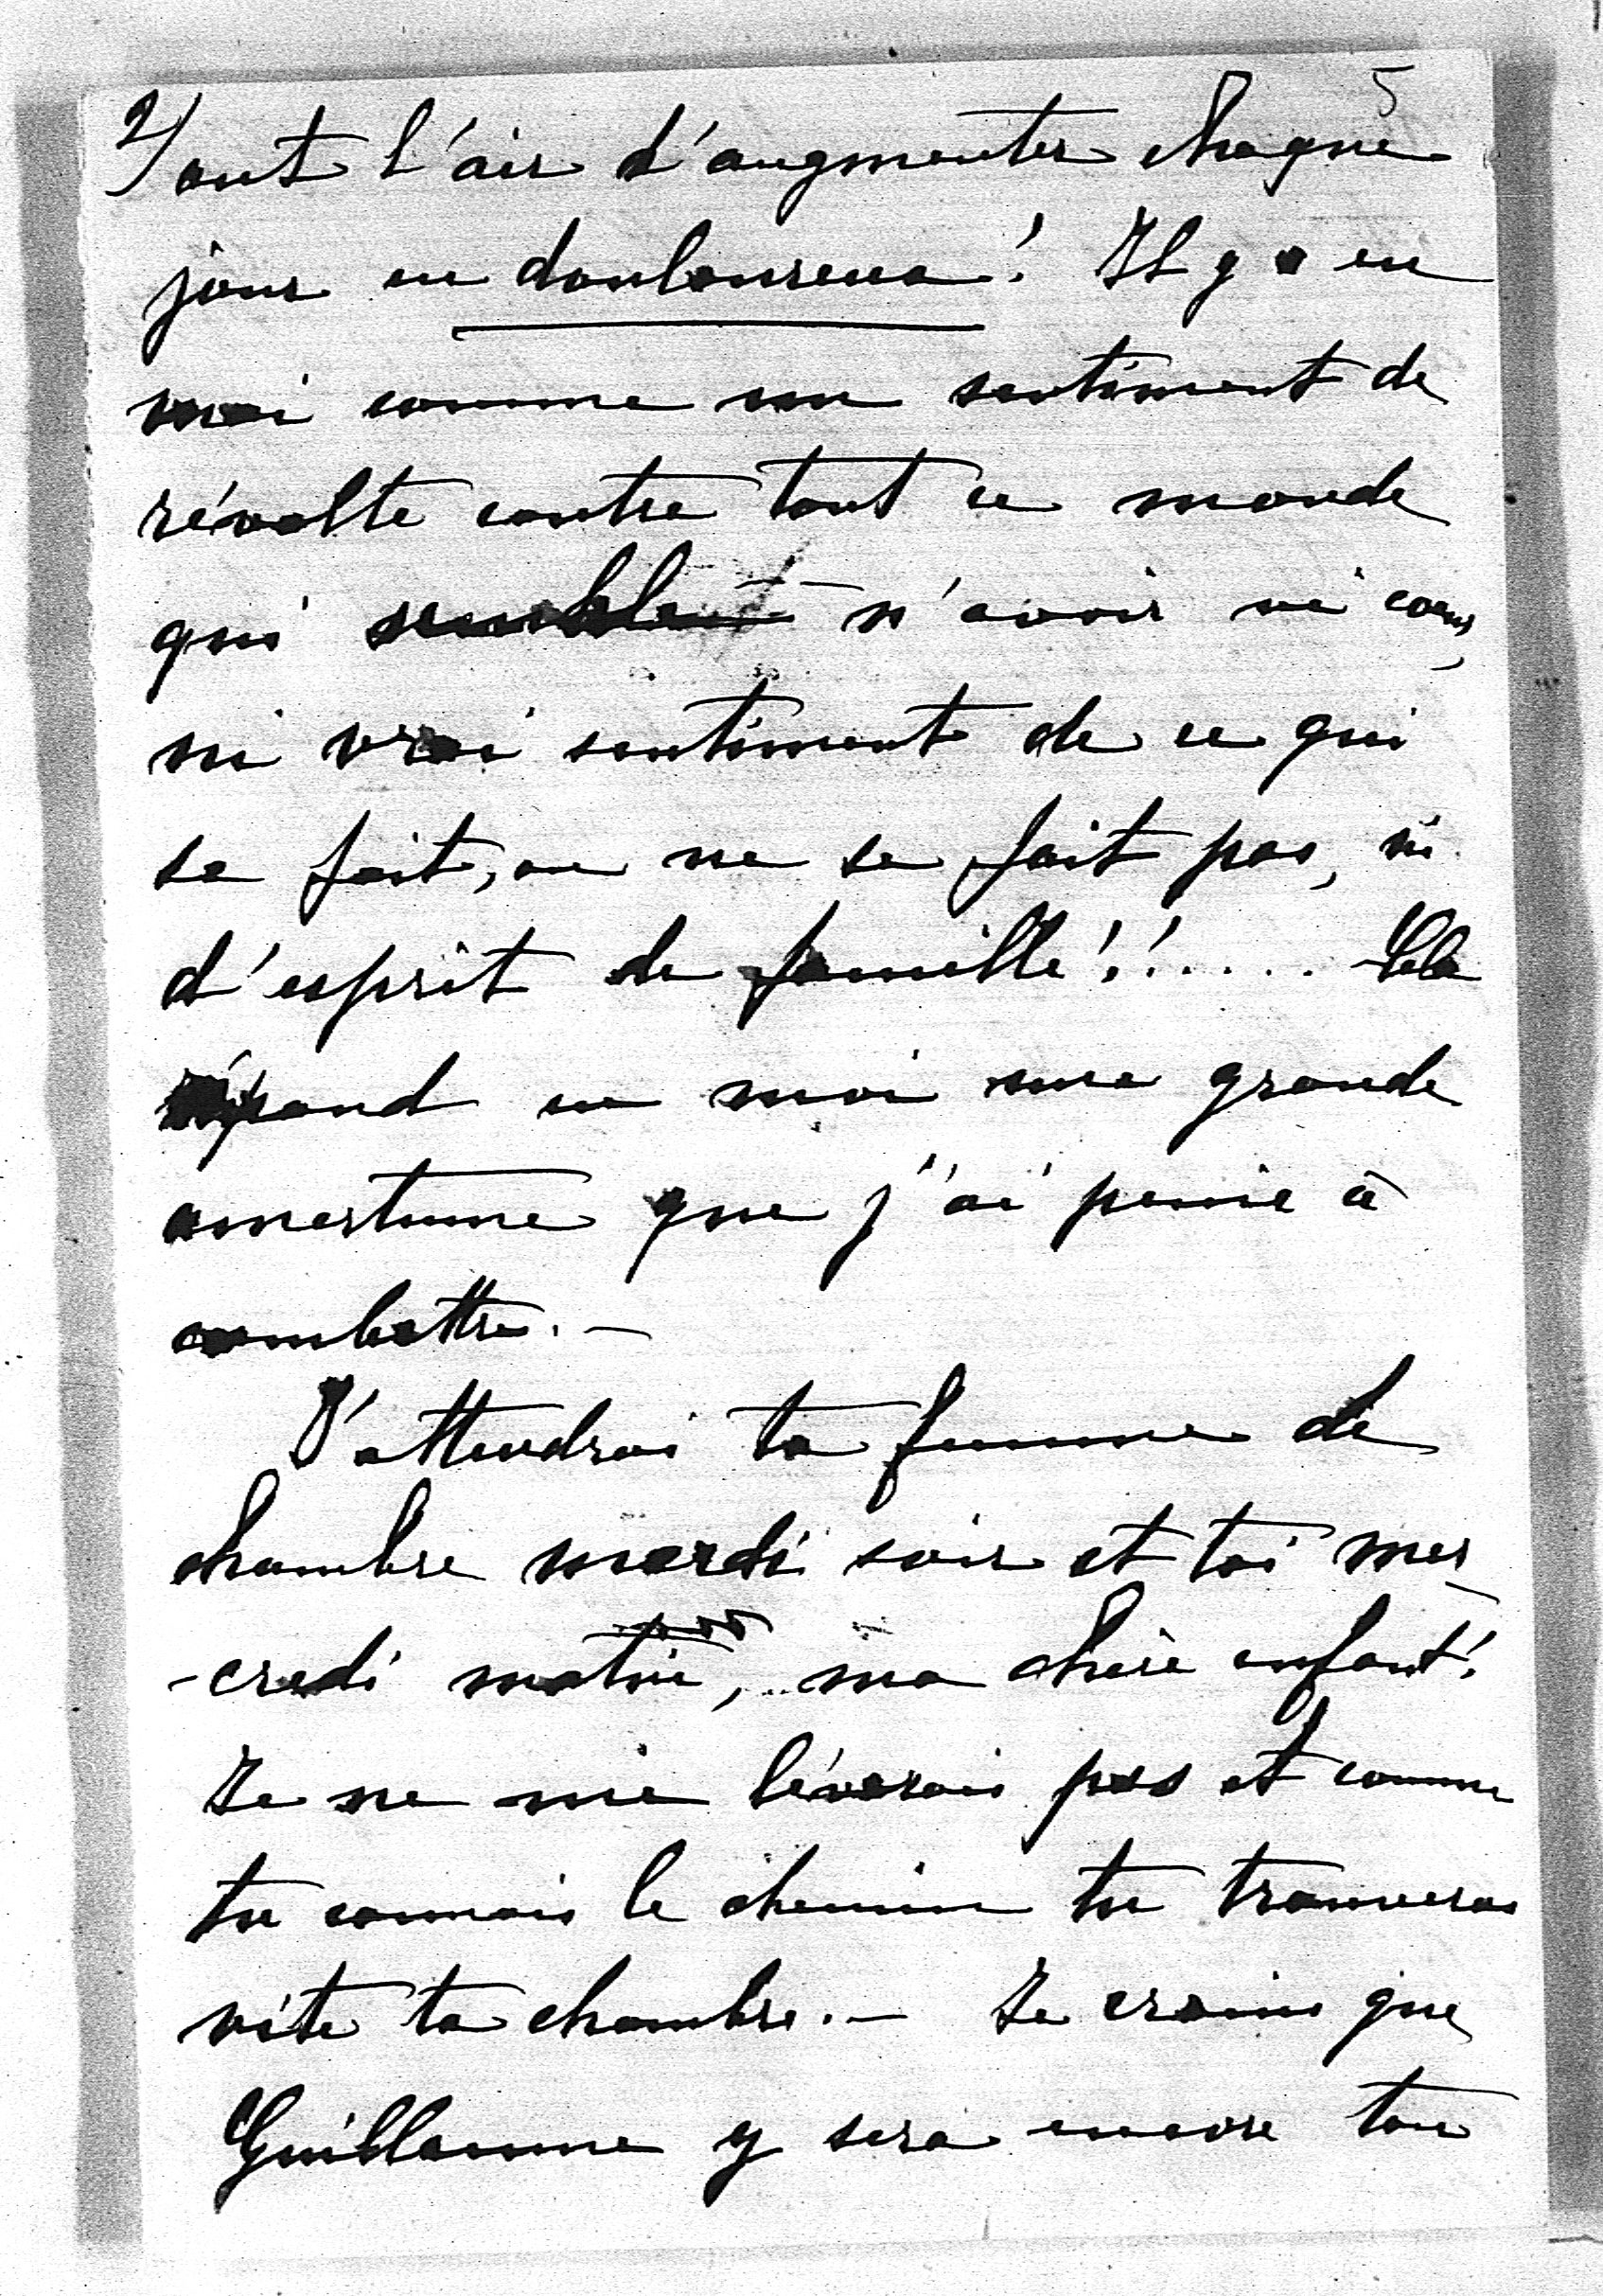 2/ 5
ont l'air d'augmenter chaque
jour en douloureux! Il y a en
moi comme un sentiment de
révolte contre tout ce monde
qui semblent n'avoir ni cœur,
ni vrai sentiment de ce qui
se fait, ou ne se fait pas, ni
d'esprit de famille!!..... Cela
répand en moi une grande
amertume que j'ai peine à
combattre. —
J'attendrai ta femme de
chambre mardi soir et toi mer
-credi matin, ma chère enfant!
Je ne me léverais pas et comme
tu connais le chemin tu trouveras
vite ta chambre. — Je crains que
Guillaume y sera encore ton